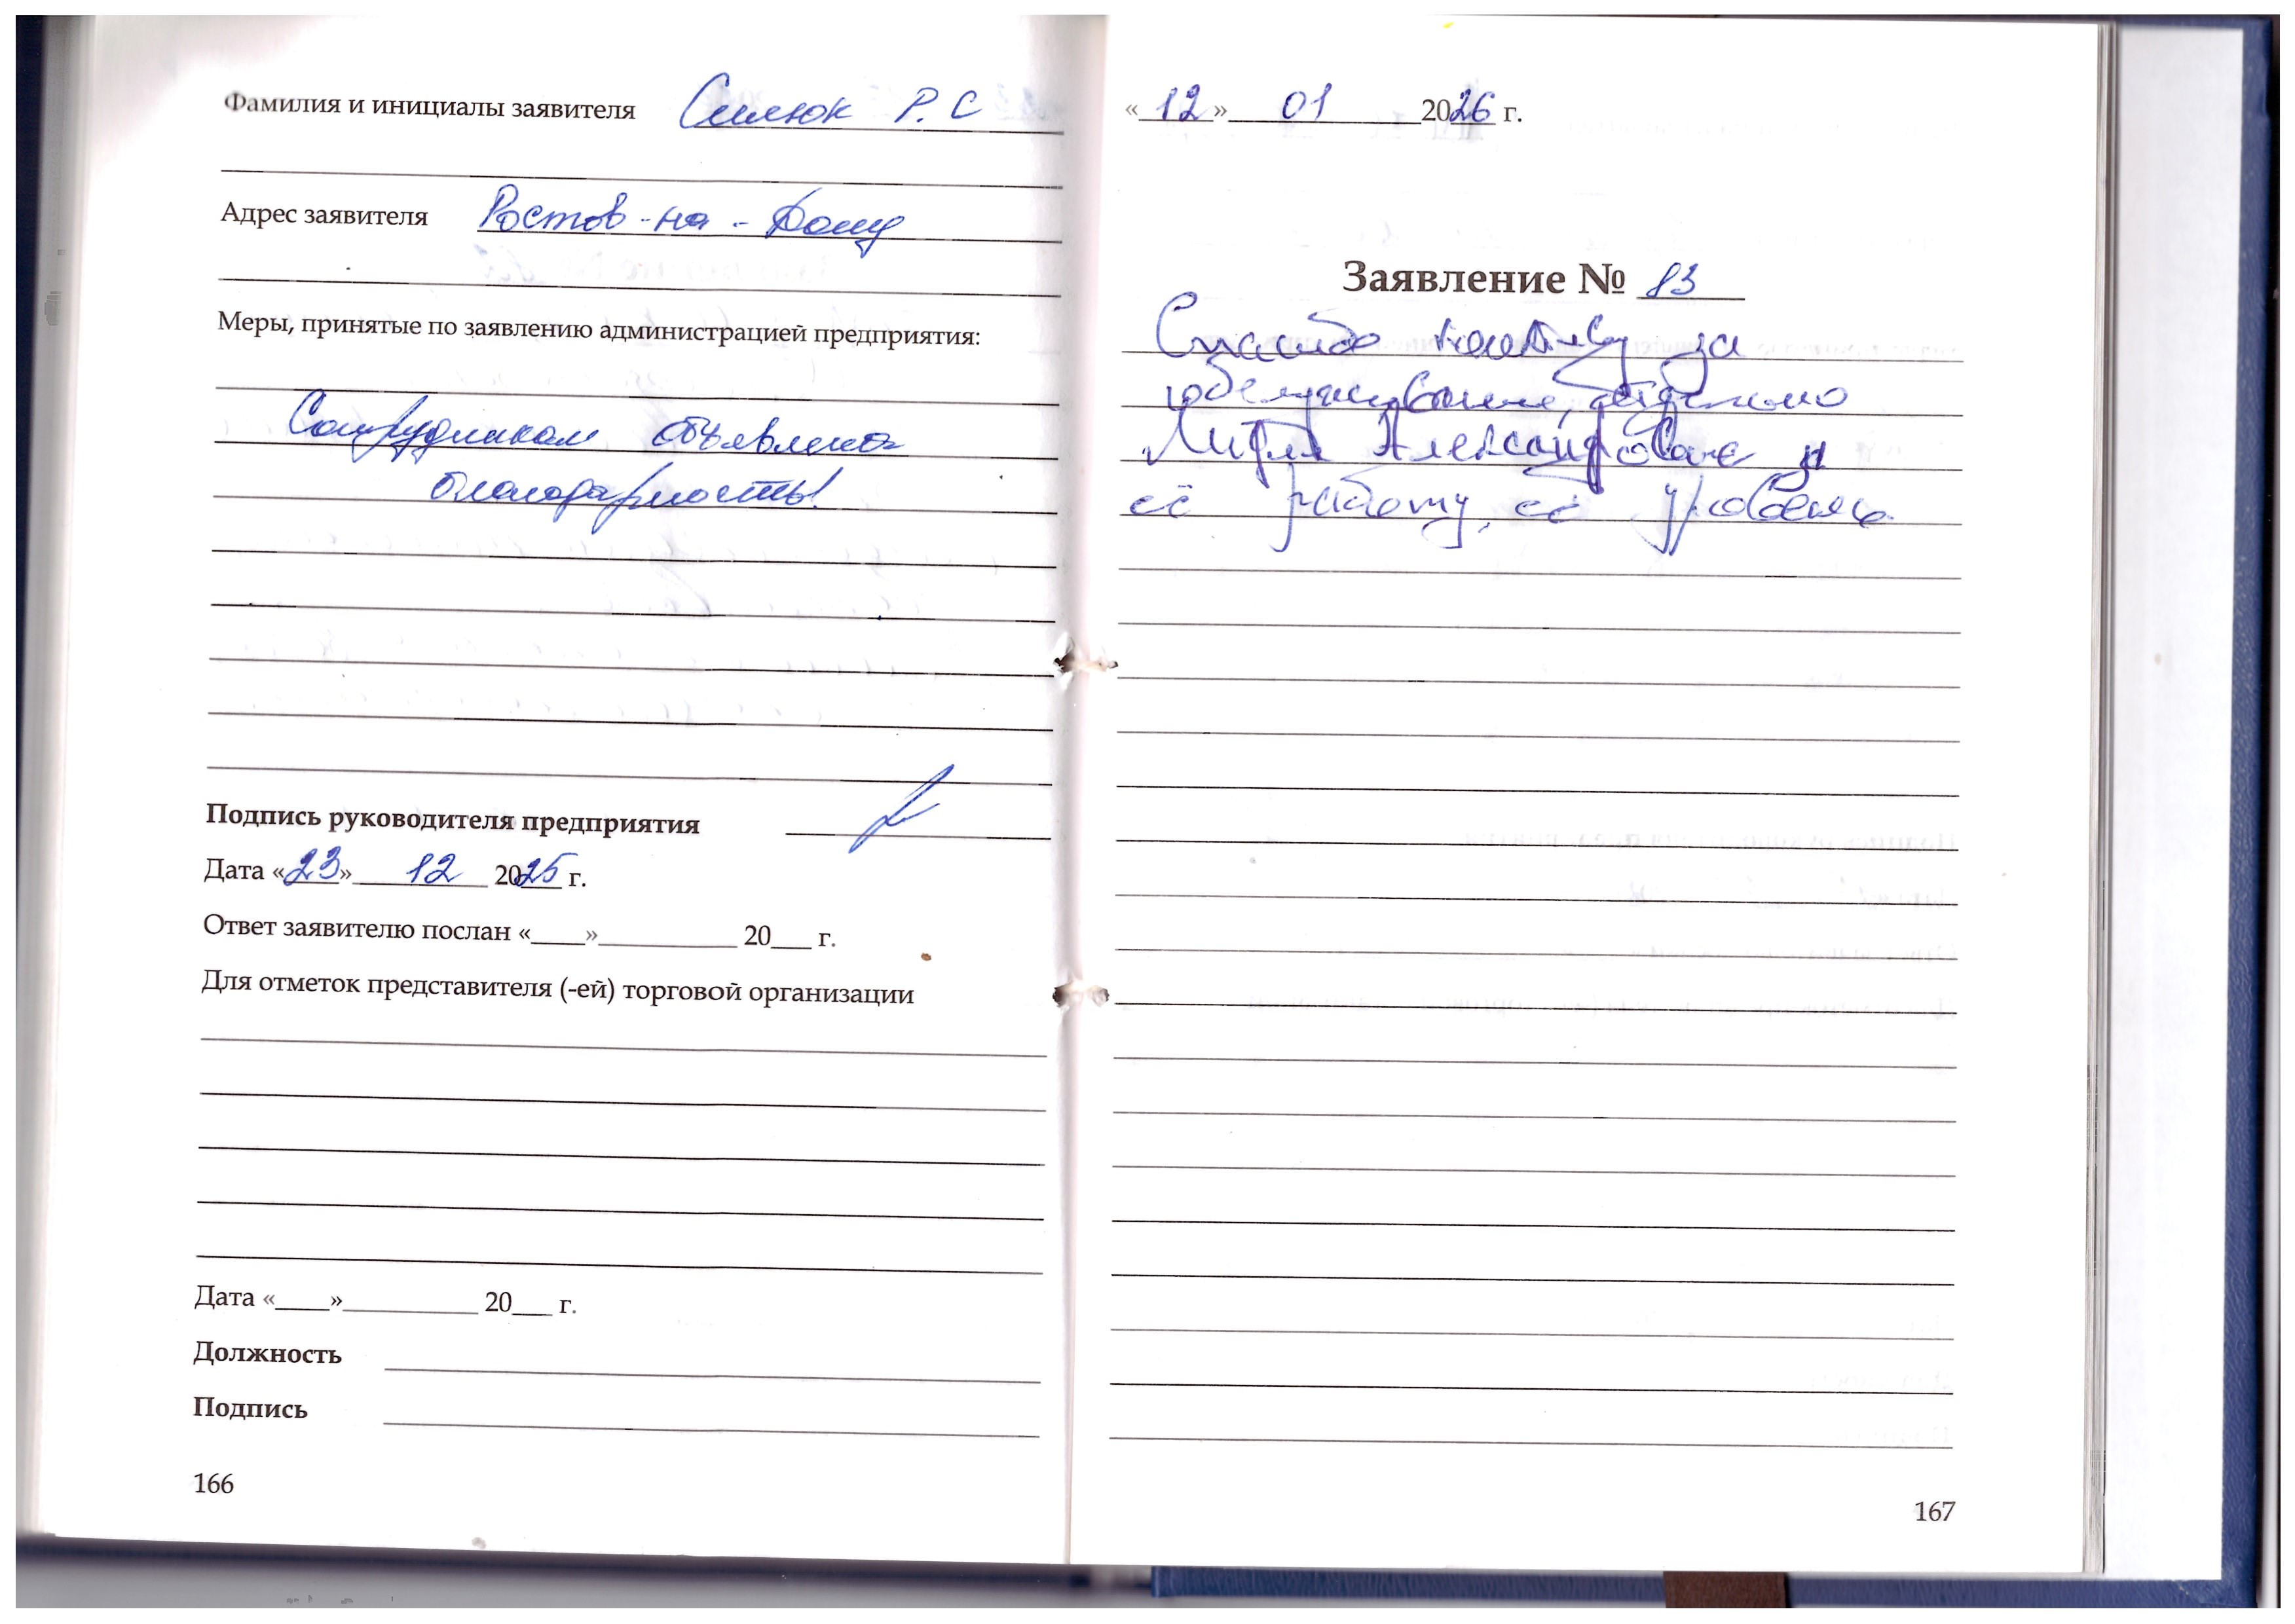 Фамилия и инициалы заявителя Силюк Р. С
Адрес заявителя Ростов-на-Дону
Меры, принятые по заявлению администрацией предприятия:
Сотрудникам объявлена
благодарность!
Подпись руководителя предприятия
Дата «23» 12 2025 г.
Ответ заявителю послан «____»__________ 20___ г.
Для отметок представителя (-ей) торговой организации
Дата «____»__________ 20___ г.
Должность
Подпись
166
«12» 01 2026 г.
Заявление № 83
Спасибо за
обслуживание, отдельно
Александровне за
её работу, её уровень
167